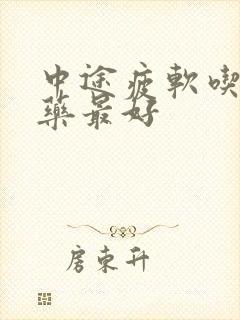 中途疲軟喫
藥最好
房東升